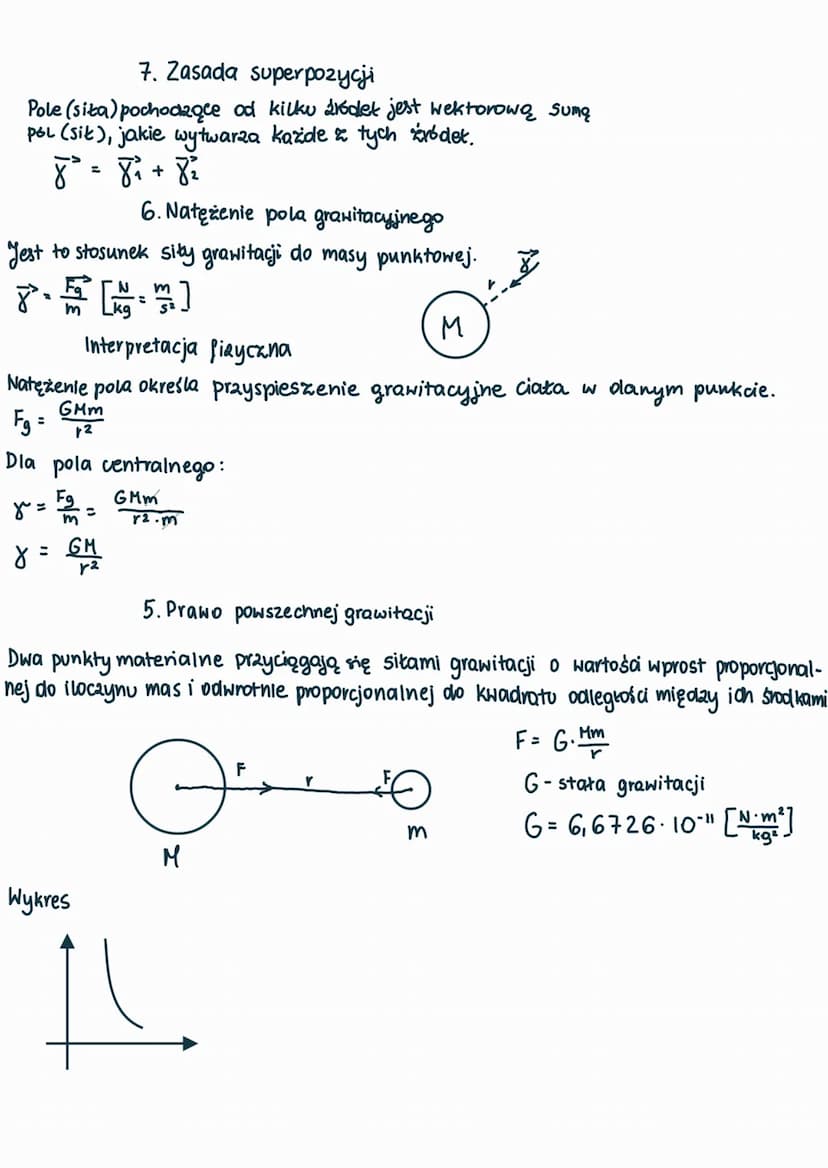 7. Zasada superpozycji
Pole (siła) pochodzące od kilku źródeł jest wektorową sumą
pól (sił), jakie wytwarza każde z tych źródeł.
γ⃗ = γ⃗₁ + γ⃗₂
6. Natężenie pola grawitacyjnego
Jest to stosunek siły grawitacji do masy punktowej.
γ⃗ = F⃗g/m [N/kg = m/s²]
r γ⃗
M
Interpretacja fizyczna
Natężenie pola określa przyspieszenie grawitacyjne ciała w danym punkcie.
Fg = GMm/r²
Dla pola centralnego:
γ = Fg/m = GMm/r²·m
γ = GM/r²
5. Prawo powszechnej grawitacji
Dwa punkty materialne przyciągają się siłami grawitacji o wartości wprost proporcjonal-
nej do iloczynu mas i odwrotnie proporcjonalnej do kwadratu odległości między ich środkami
F = G·Mm/r
F r F
G - stała grawitacji
m
G = 6,6726·10⁻¹¹ [N·m²/kg²]
M
Wykres